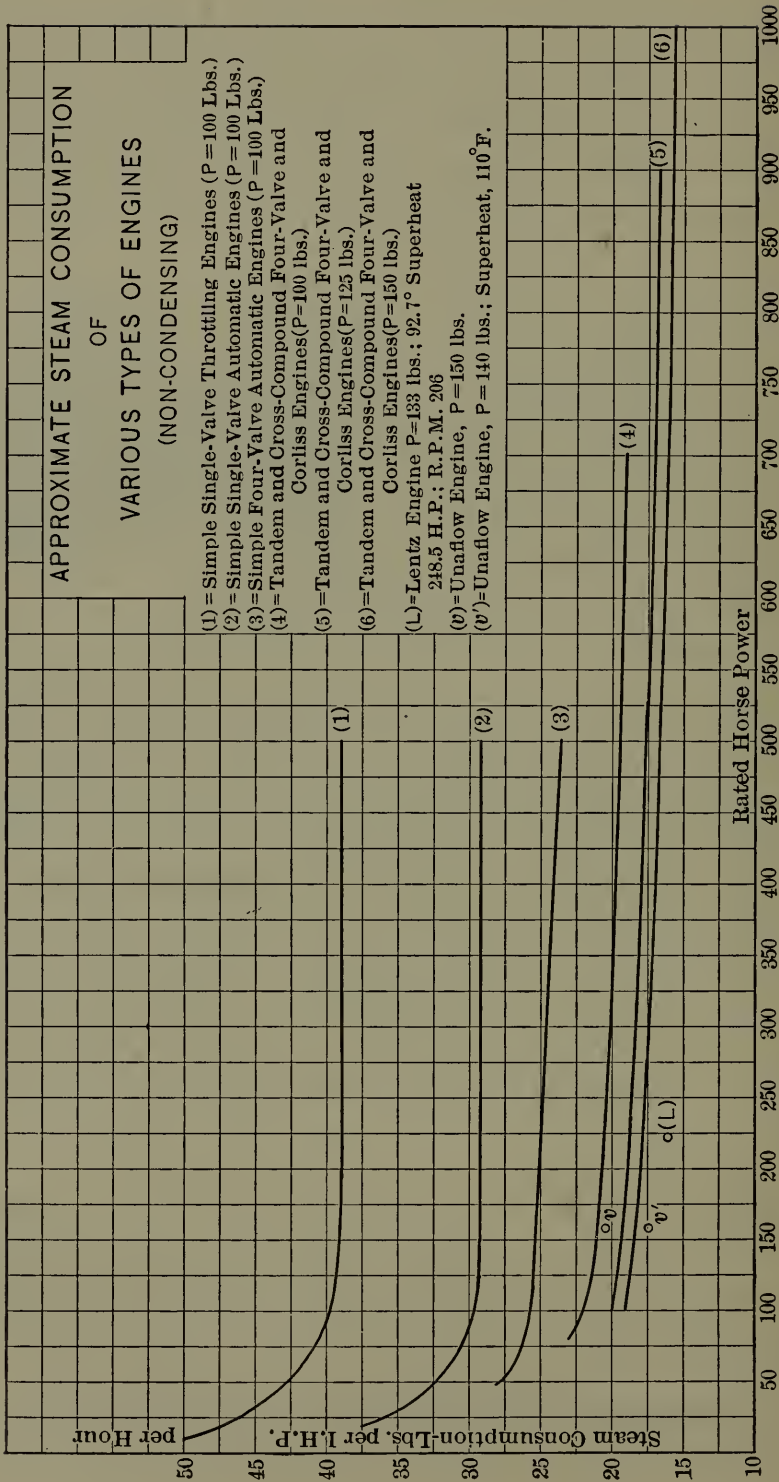 APPROXIMATE STEAM CONSUMPTION
OF
VARIOUS TYPES OF ENGINES
(NON-CONDENSING)
(1)=Simple Single-Valve Throttling Engines (P=100 Lbs.)
(2)=Simple Single-Valve Automatic Engines (P=100 Lbs.)
(3)=Simple Four-Valve Automatic Engines (P=100 Lbs.)
(4)=Tandem and Cross-Compound Four-Valve and
Corliss Engines(P=100 lbs.)
(5)=Tandem and Cross-Compound Four-Valve and
Corliss Engines(P=125 lbs.)
(6)=Tandem and Cross-Compound Four-Valve and
Corliss Engines(P=150 lbs.)
(L)=Lentz Engine P=133 lbs.; 92.7° Superheat
248.5 H.P.; R.P.M. 206
(v)=Unaflow Engine, P=150 lbs.
(v')=Unaflow Engine, P=140 lbs.; Superheat, 110°F.
(1)
(2)
(3)
(4)
(5)
(6)
v
v'
(L)
Steam Consumption-Lbs. per I.H.P.
per Hour
50
45
40
35
30
25
20
15
10
Rated Horse Power
50
100
150
200
250
300
350
400
450
500
550
600
650
700
750
800
850
900
950
1000